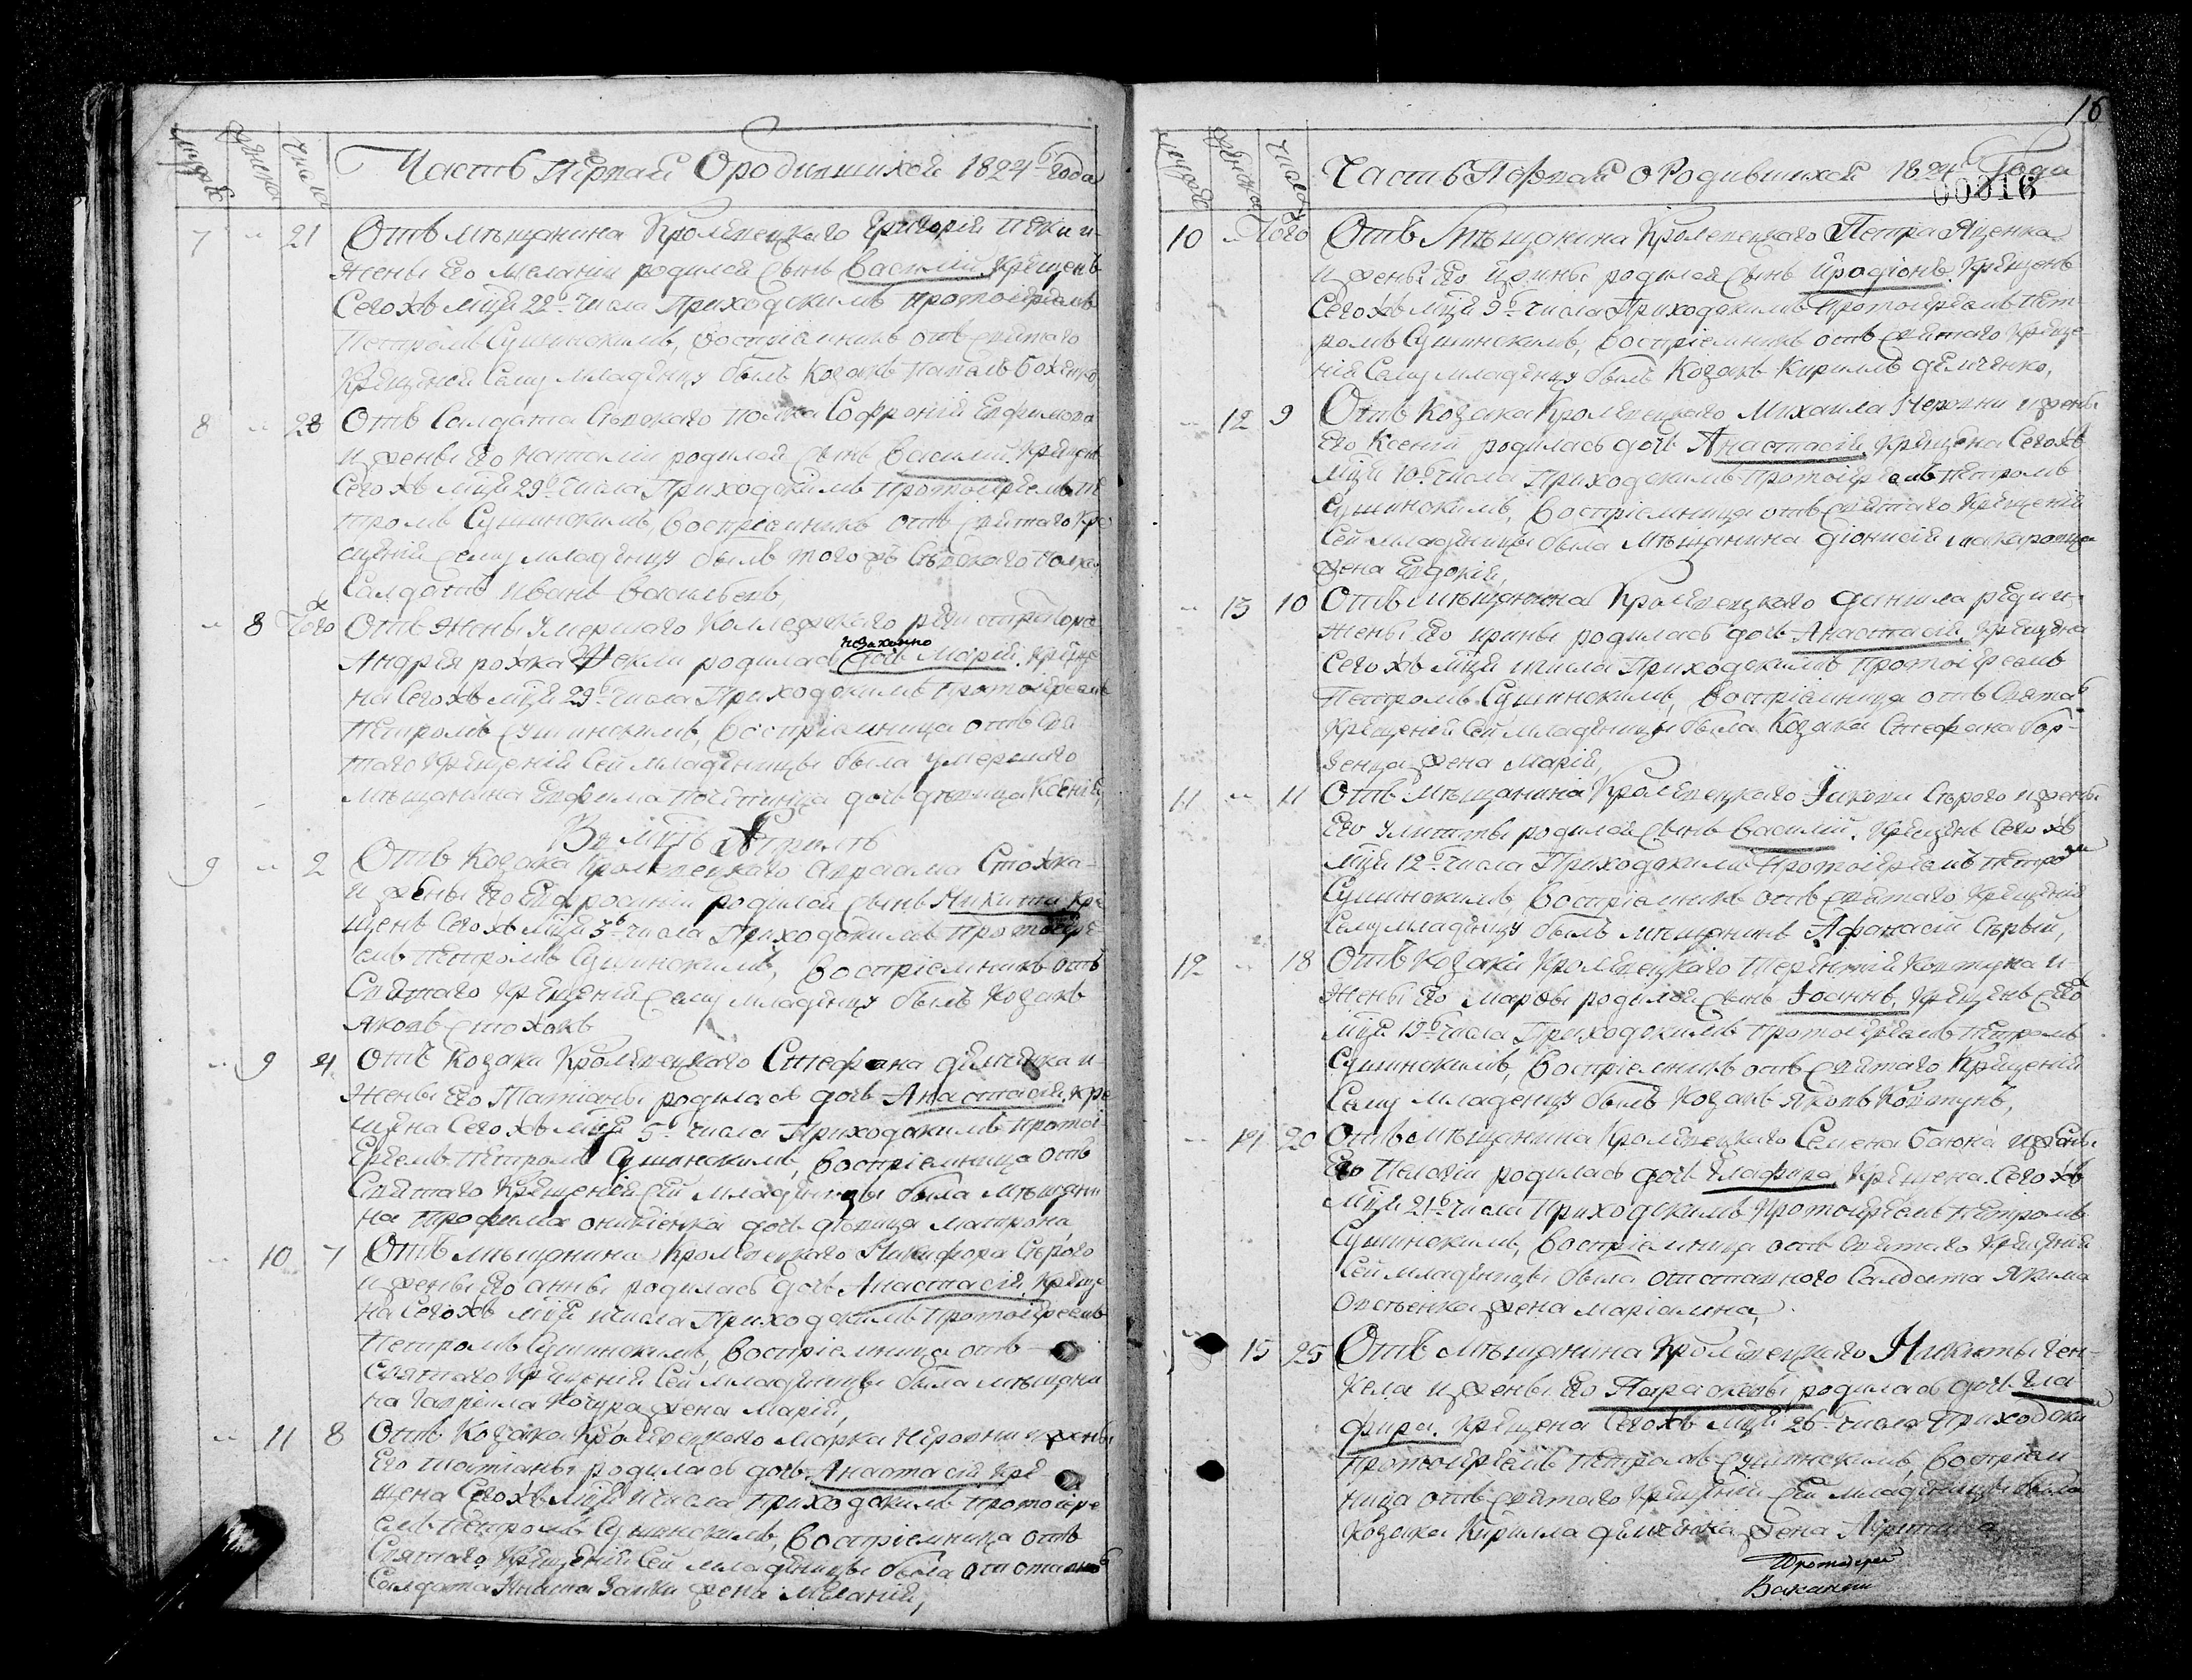 Часть Первая О родившихся 1824 года
7 „ 21 Отъ мѣщанина Кролевецкаго Григорія и
жены Его Меланіи родился сынъ Василій, Крещенъ
Сего жъ мца 22 числа Приходскимъ Протоіереемъ
Петромъ Сушинскимъ, Воспріемникъ отъ святаго
Крещенія Сему младенцу былъ Козакъ Павелъ
8 „ 28 Отъ Салдата Сѣвскаго полка Софронія Евфимова
и жены Его Наталіи родился сынъ Василій, Крещенъ
Сего жъ мца 29 числа Приходскимъ Протоіереемъ Пе
тромъ Сушинскимъ, Воспріемникъ отъ святаго Кре
щенія сему младенцу былъ того жъ Сѣвскаго полка
Салдатъ Иванъ Васильевъ,
„ 8 Того Отъ жены умершаго Коллежскаго регистратора
незаконно
Андрея рожка Феклы родилась дочь Марія, Креще
на Сего жъ мца 29 числа Приходскимъ Протоіереемъ
Петромъ Сушинскимъ, Воспріемница отъ Свя
таго Крещенія Сей младенцы была умершаго
мѣщанина Евфима дочь дѣвица Ксенія,
Въ мцѣ Априлѣ
9 „ 2 Отъ Козака Кролевецкаго Авраама Стожка
и жены Его Евфросиніи родился сынъ Никита, Кре
щенъ Сего жъ мца 3 числа Приходскимъ Протоіере
емъ Петромъ Сушинскимъ, Воспріемникъ отъ
Святаго Крещенія Сему младенцу былъ Козакъ
Яковъ Стожокъ
„ 9 4 Отъ Козака Кролевецкаго Стефана Демченка и
жены Его Татіаны родилась дочь Анастасія, Кре
щена Сего жъ мца 5 числа Приходскимъ Протоі
ереемъ Петромъ Сушинскимъ, Воспріемница отъ
Святаго Крещенія Сей младенцы была мѣщани
на Трофима дочь дѣвица Матрона,
„ 10 7 Отъ мѣщанина Кролевецкаго Никифора Сѣрого
и жены Его Анны родилась дочь Анастасія, Креще
на Сего жъ мца и числа Приходскимъ Протоіереемъ
Петромъ Сушинскимъ, Воспріемница отъ
Святаго Крещенія Сей младенцы была мѣщани
на Гавріила Кочура жена Марія,
„ 11 8 Отъ Козака Кролевецкаго Марка и жены
Его Татіаны родилась дочь Анастасія, Кре
щена Сего жъ мца и числа Приходскимъ Протоіере
емъ Петромъ Сушинскимъ, Воспріемница отъ
Святаго Крещенія Сей младенцы была отставнаго
Салдата Игната жена Меланія,
16
Часть Первая О Родившихся 1824 Года
00016
10 „ Того Отъ Мѣщанина Кролевецкаго Петра Яценка
и жены Его Ирины родился сынъ Иродіонъ, Крещенъ
Сего жъ мца 9 числа Приходскимъ Протоіереемъ Пет
ромъ Сушинскимъ, Воспріемникъ отъ святаго Креще
нія Сему младенцу былъ Козакъ Кирилъ Демченко,
„ 12 9 Отъ Козака Кролевецкаго Михаила и жены
Его Ксеніи родилась дочь Анастасія, Крещена Сего жъ
мца 10 числа Приходскимъ Протоіереемъ Петромъ
Сушинскимъ, Воспріемница отъ святаго Крещенія
Сей младенцы была Мѣщанина Діонисія Макаровца
жена Евдокія,
„ 13 10 Отъ мѣщанина Кролевецкаго Данила и
жены Его Ирины родилась дочь Анастасія, Крещена
Сего жъ мца и числа Приходскимъ Протоіереемъ
Петромъ Сушинскимъ, Воспріемница отъ Святаго
Крещенія Сей младенцы была Козака Стефана
жена Марія,
11 „ 11 Отъ Мѣщанина Кролевецкаго Іякова Сѣрого и жены
Его Улиты родился сынъ Василій, Крещенъ Сего жъ
мца 12 числа Приходскимъ Протоіереемъ Петромъ
Сушинскимъ, Воспріемникъ отъ святаго Крещенія
Сему младенцу былъ мѣщанинъ Афанасій Сѣрый,
12 „ 18 Отъ Козака Кролевецкаго Терентія Ковтуна и
жены Его Марфы родился сынъ Іоаннъ, Крещенъ Сего
мца 19 числа Приходскимъ Протоіереемъ Петромъ
Сушинскимъ, Воспріемникъ отъ святаго Крещенія
Сему Младенцу былъ Козакъ Яковъ Ковтунъ,
„ 14 20 Отъ мѣщанина Кролевецкаго Семена Баюка и жены
Его Пелагіи родилась дочь Глафира, Крещена Сего жъ
мца 21 числа Приходскимъ Протоіереемъ Петромъ
Сушинскимъ, Воспріемница отъ Святаго Крещенія
Сей младенцы была отставного Салдата Якима
Овсѣенка жена Маріамна,
„ 15 25 Отъ мѣщанина Кролевецкаго Никиты
и жены Его Параскевы родилась дочь Гла
фира, Крещена Сего жъ мца 26 числа Приходски
Протоіереемъ Петромъ Сушинскимъ, Воспріем
ница отъ святаго Крещенія Сей младенцы была
Козака Кирилла Демченка жена
Протоіерей